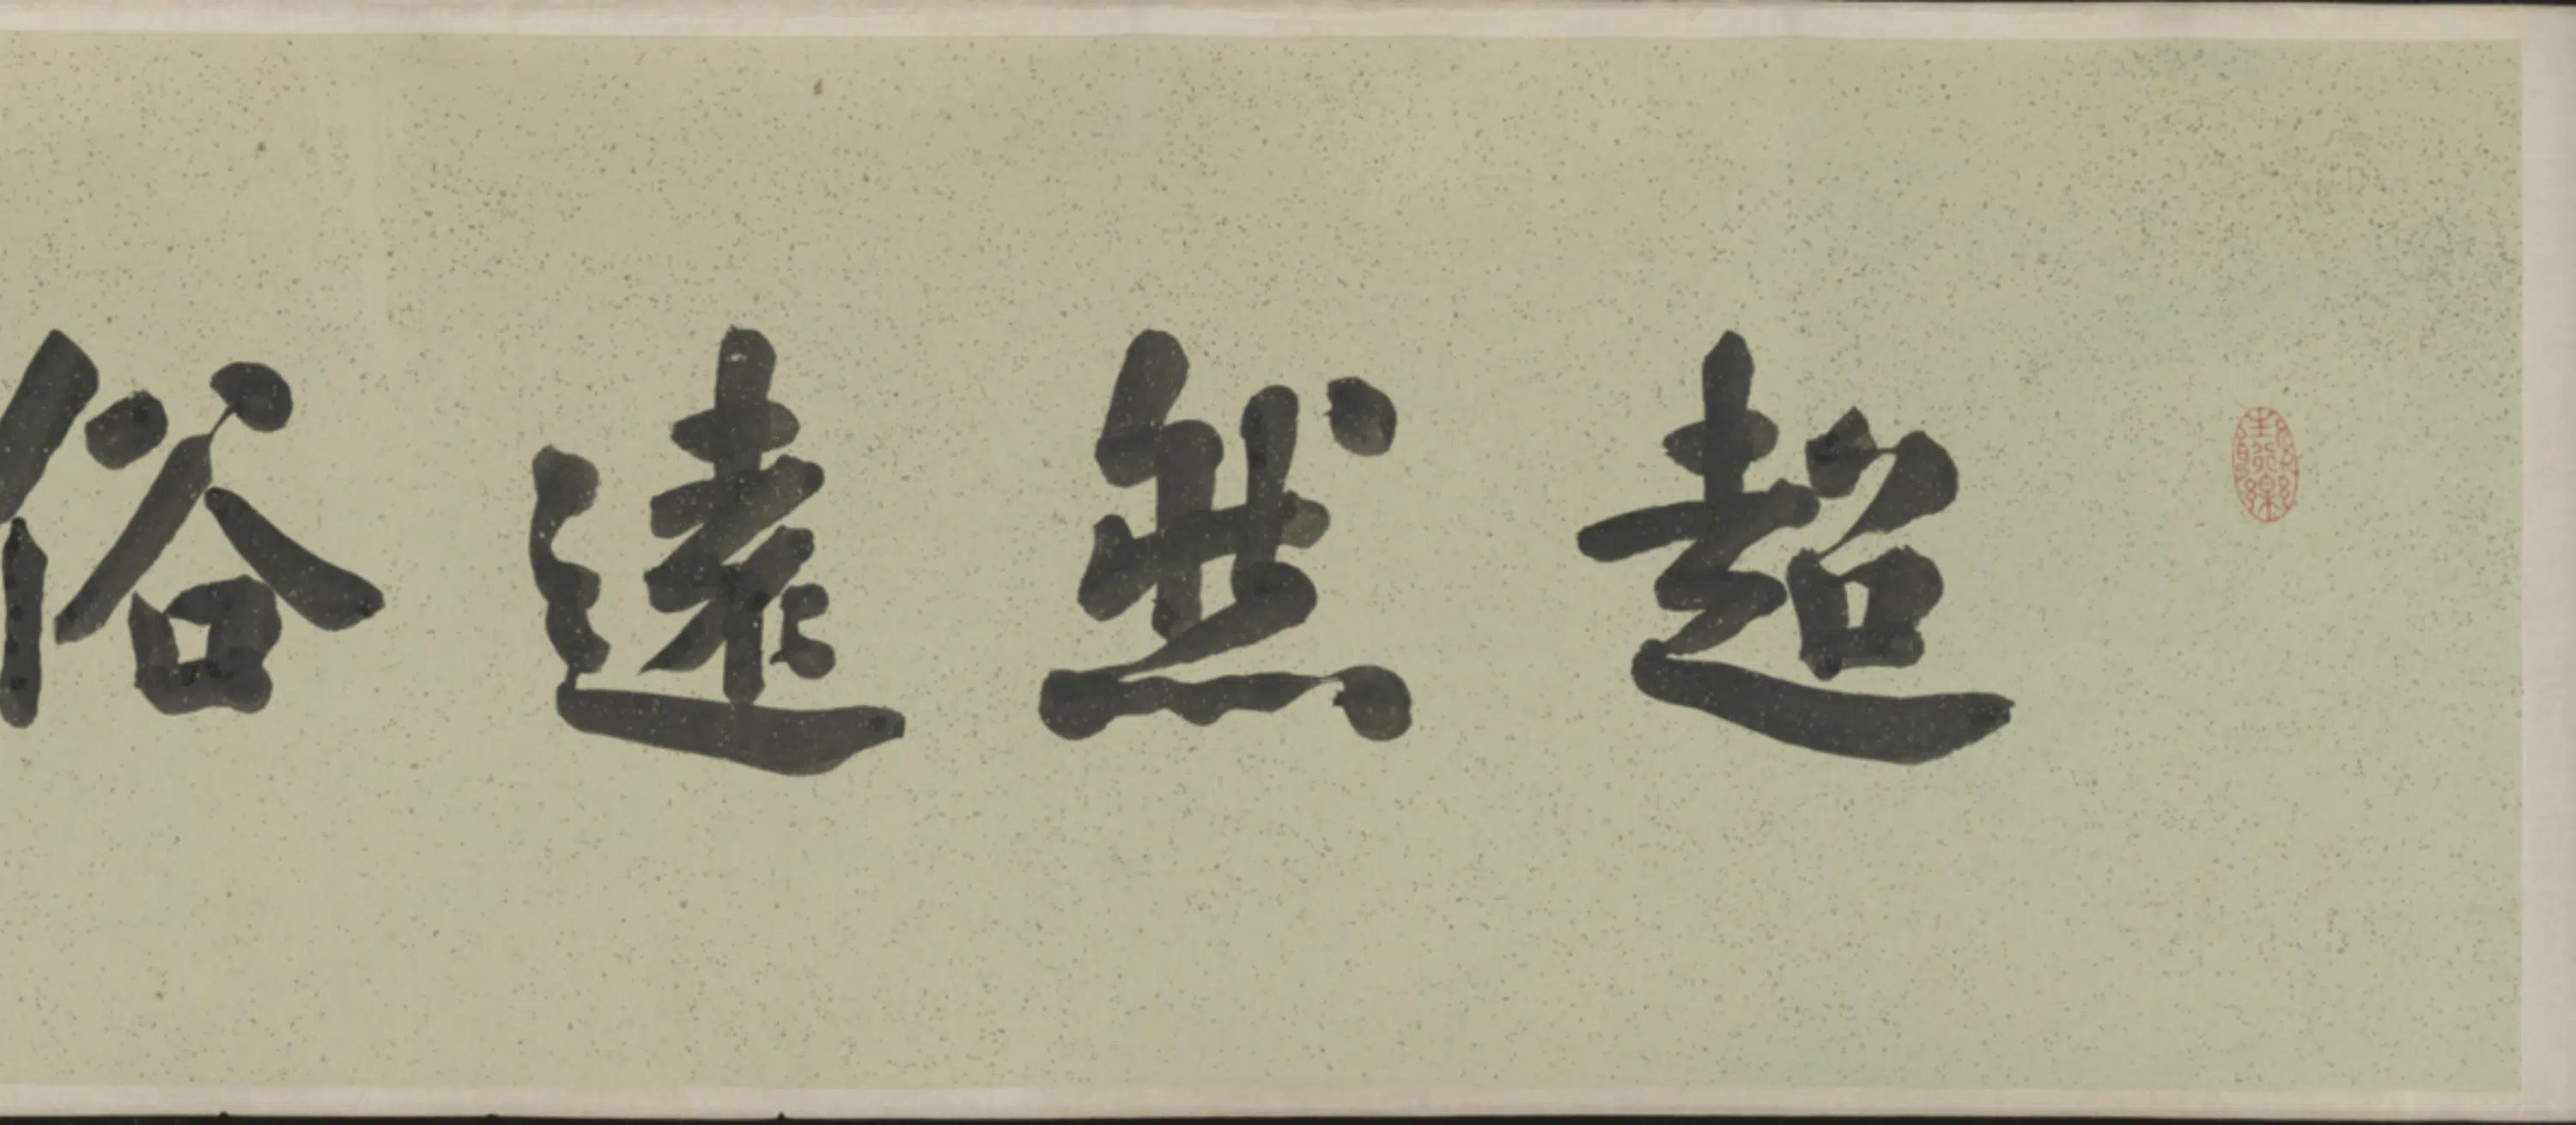 超然遠俗